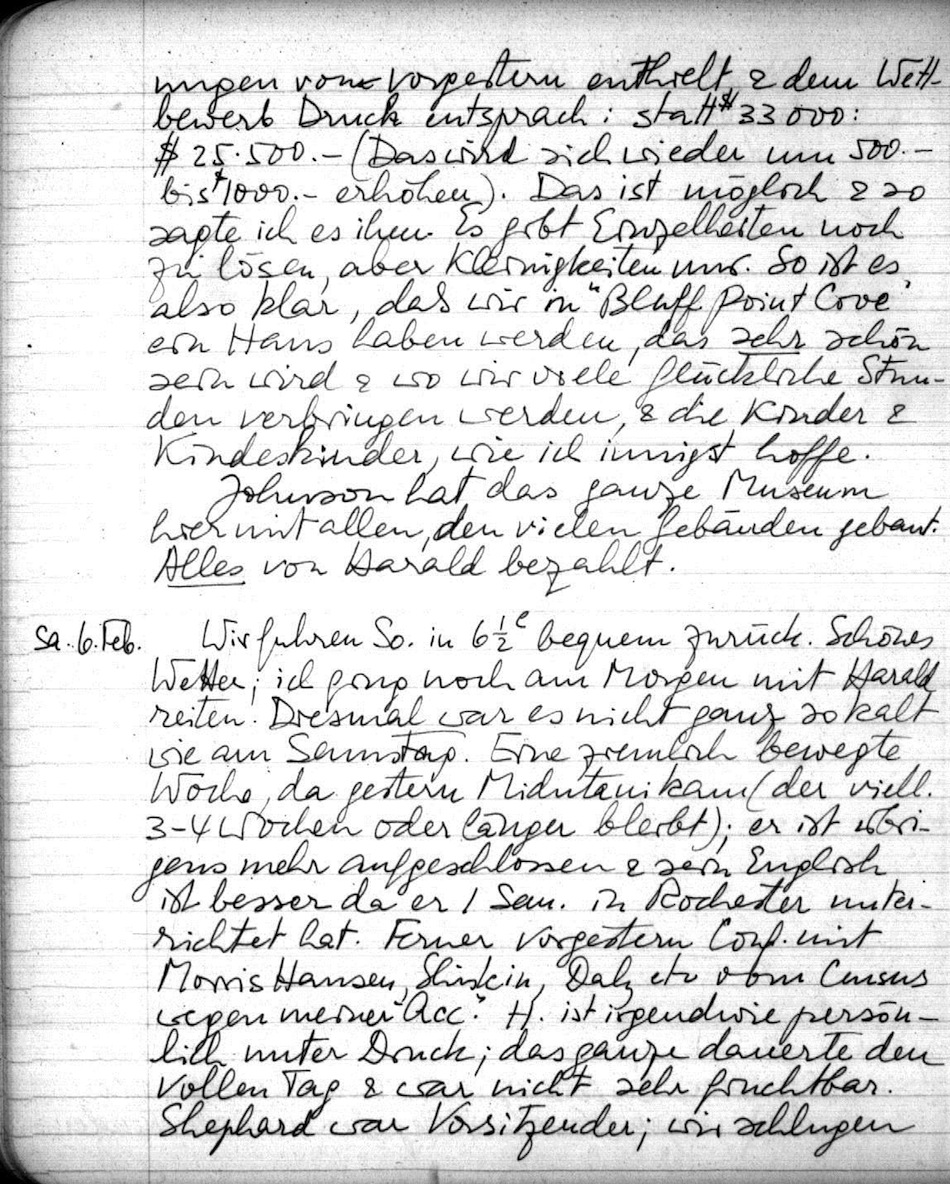 nungen von vorgestern enthielt & dem Wett-
bewerb Druck entsprach: statt $33 000:
$ 25.500.- (Das wird sich wieder um 500.-
bis $1000.- erhöhen). Das ist möglich & so
sagte ich es ihm. Es gibt Einzelheiten noch
zu lösen, aber Kleinigkeiten nur. So ist es
also klar, daß wir in "Bluff Point Cove"
ein Haus haben werden, das sehr schön
sein wird & wo wir viele glückliche Stun-
den verbringen werden, & die Kinder &
Kindeskinder, wie ich innigst hoffe.
Johnson hat das ganze Museum
hier mit allen, den vielen Gebäuden gebaut.
Alles von Harald bezahlt.
Sa. 6. Feb. Wir fuhren So. in 6 1/2 e bequem zurück. Schönes
Wetter; ich ging noch am Morgen mit Harald
reiten. Diesmal war es nicht ganz so kalt
wie am Samstag. Eine ziemlich bewegte
Woche, da gestern Midutani kam (der viell.
3-4 Wochen oder länger bleibt); er ist übri-
gens mehr aufgeschlossen & sein English
ist besser da er 1 Sem. in Rochester unter-
richtet hat. Ferner vorgestern Conf. mit
Morris Hansen, Shiskin, Daly etc vom Census
wegen meiner "Acc." H. ist irgendwie persön-
lich unter Druck; das ganze dauerte den
vollen Tag & war nicht sehr fruchtbar.
Shephard war Vorsitzender; wir schlugen